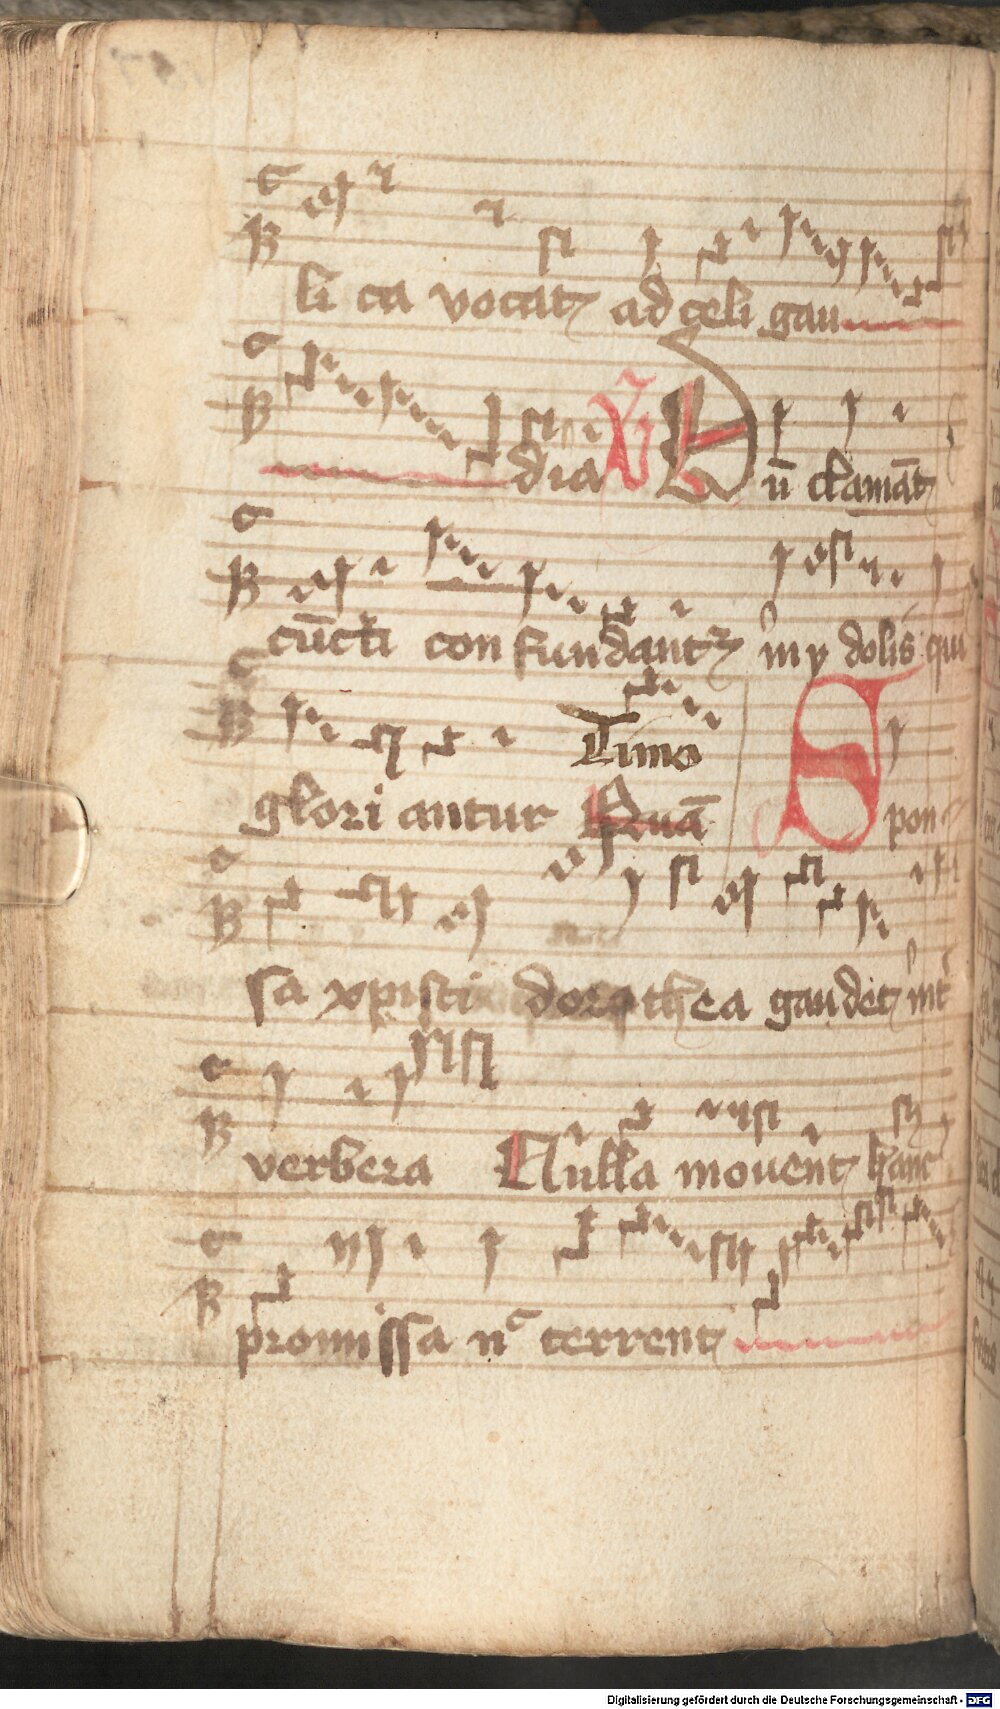 li ca vocat ad celi gau
dia V̷ Dū clamāt
cūcti con fundantꝛ in y dolis qui
Timo
glori antur Quā S pon
sa xpisti dorothea gaudet int
verbera Nulla movent hanc
promissa nc terrent
Digitalisierung gefördert durch die Deutsche Forschungsgemeinschaft - DFG